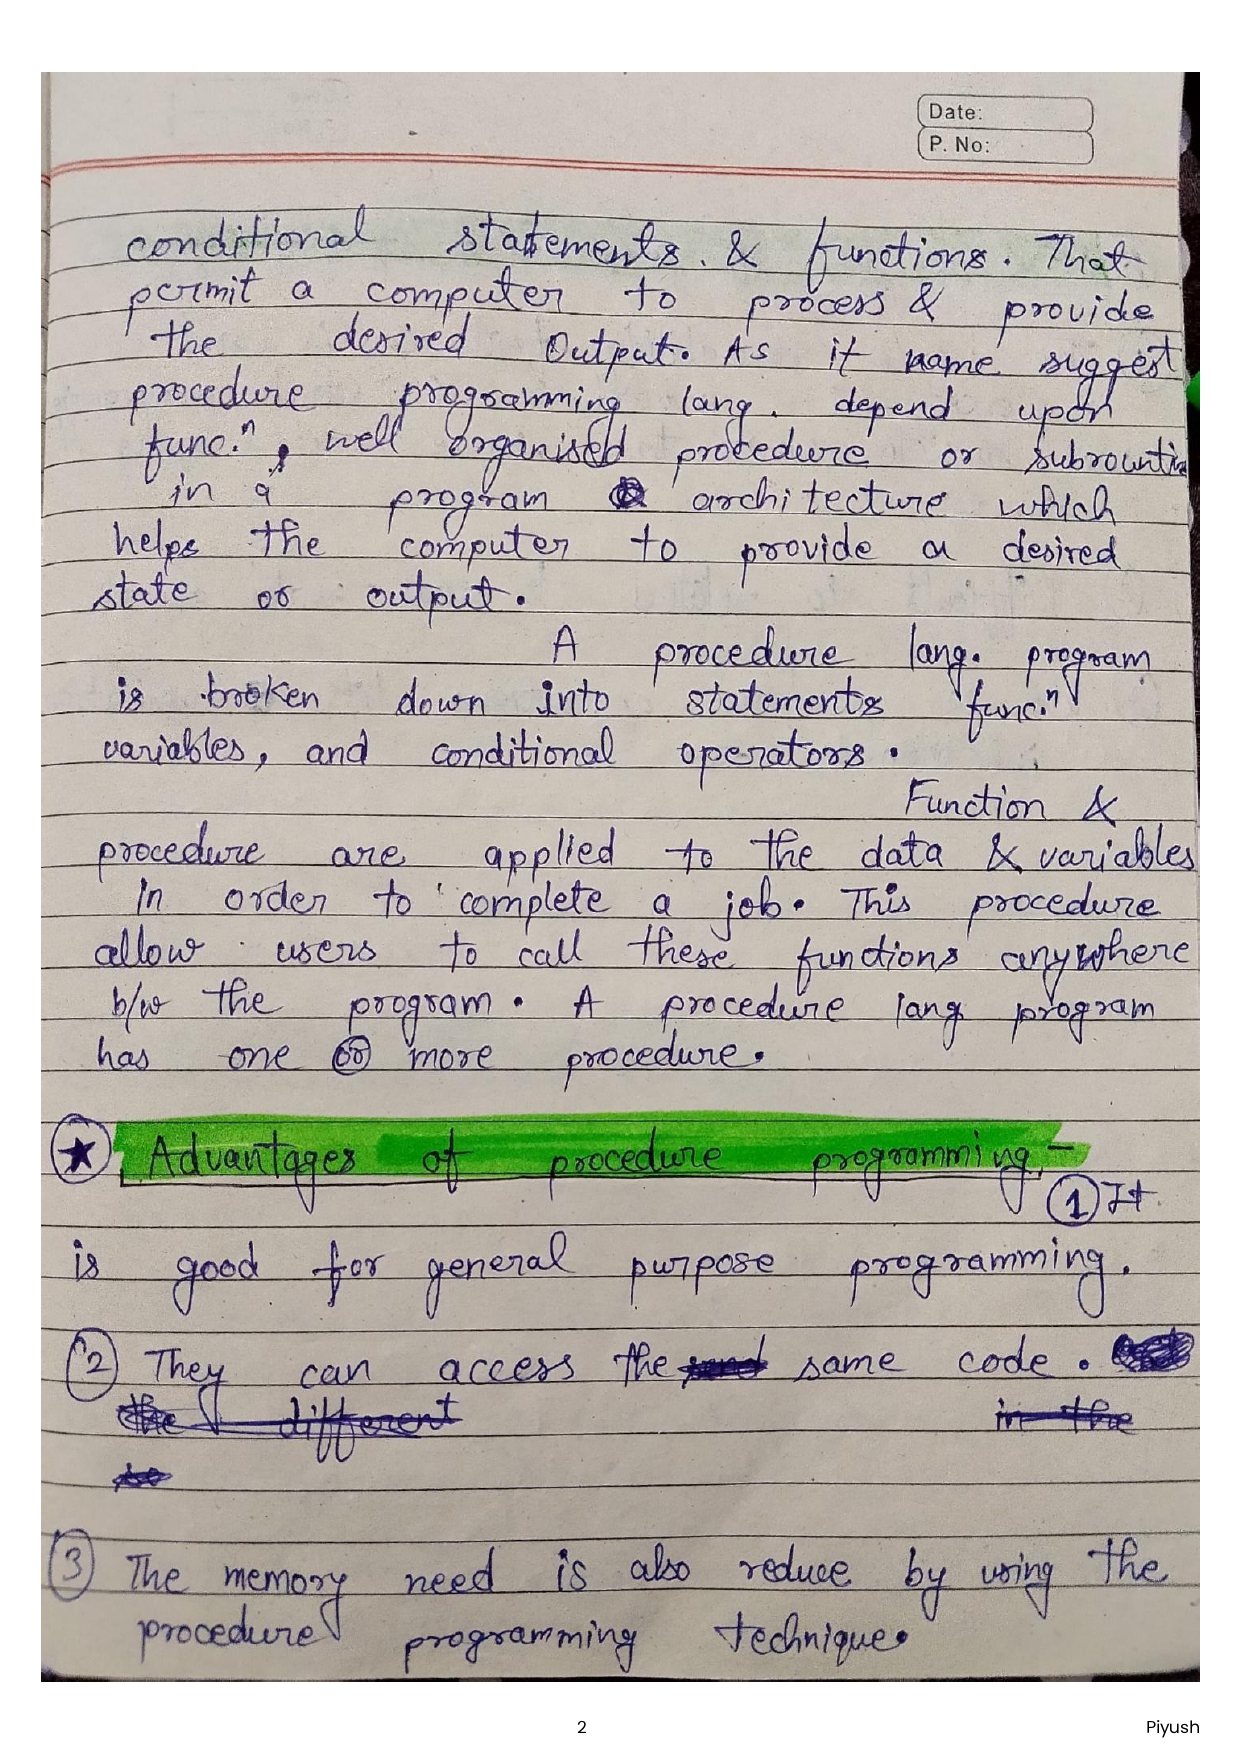 Date:
P. No:
conditional statements. & functions. That
permit a computer to process & provide
the desired Output. As it name suggest
procedure programming lang. depend upon
func.ⁿ, well organised procedure or subrountin
in a program architecture which
helps the computer to provide a desired
state or output.
A procedure lang. program
is broken down into statements func.ⁿ
variables, and conditional operators.
Function &
procedure are applied to the data & variables
in order to complete a job. This procedure
allow users to call these functions anywhere
b/w the program. A procedure lang program
has one or more procedure.
★ Advantages of procedure programming,-
① It
is good for general purpose programming.
② They can access the same code.
the different in the
③ The memory need is also reduce by using the
procedure programming technique.
2 Piyush